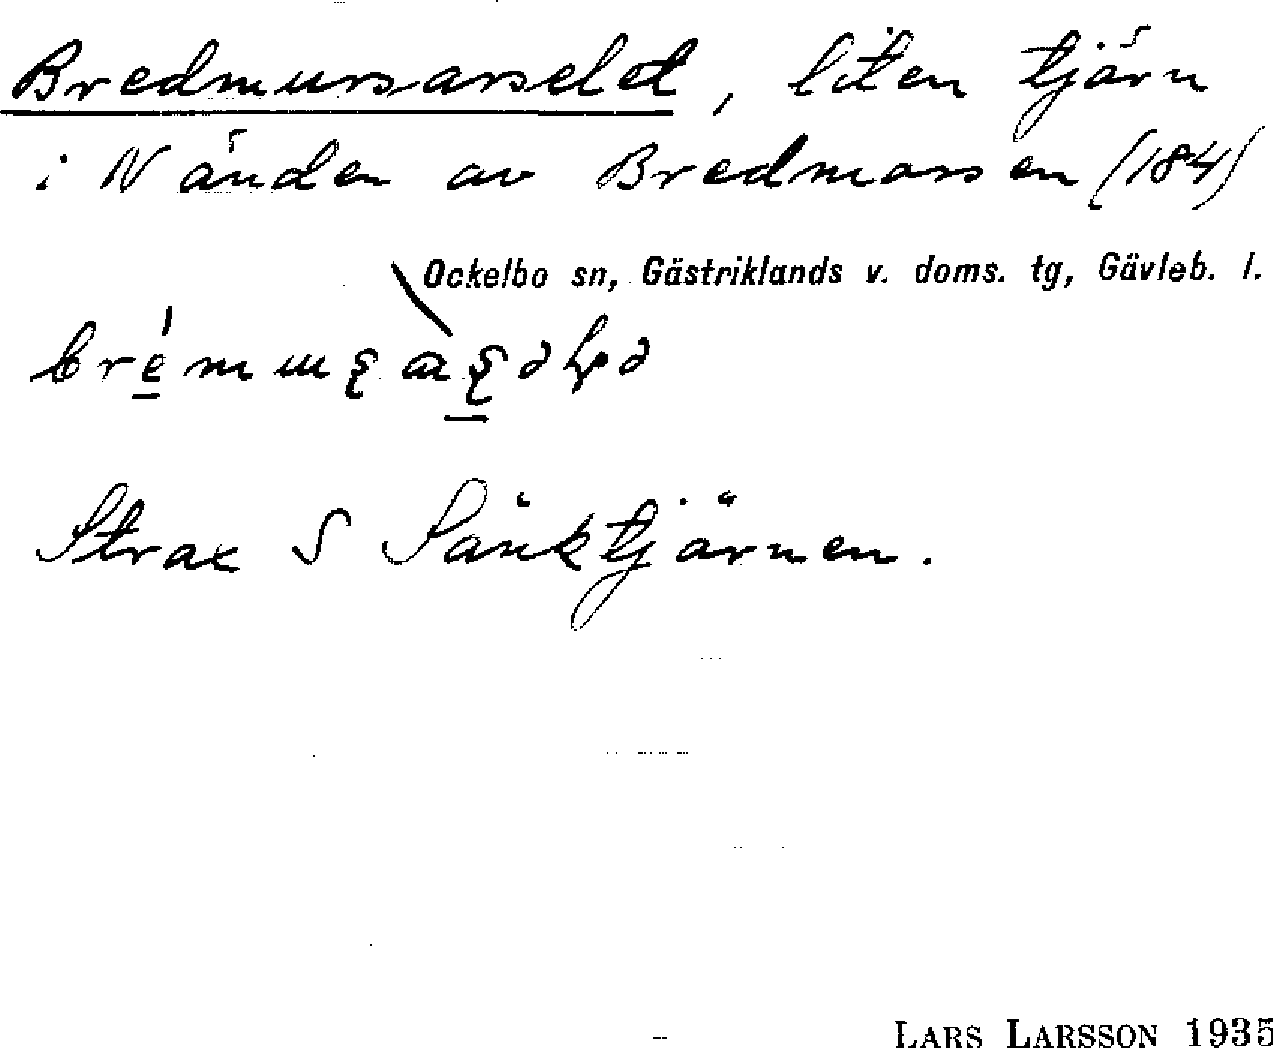 Bredmursarselet, liten tjärn
i N änden av Bredmossen (184)
Ockelbo sn, Gästriklands v. doms. tg, Gävleb. l.
Strax S Sänktjärnen.
LARS LARSSON 1935